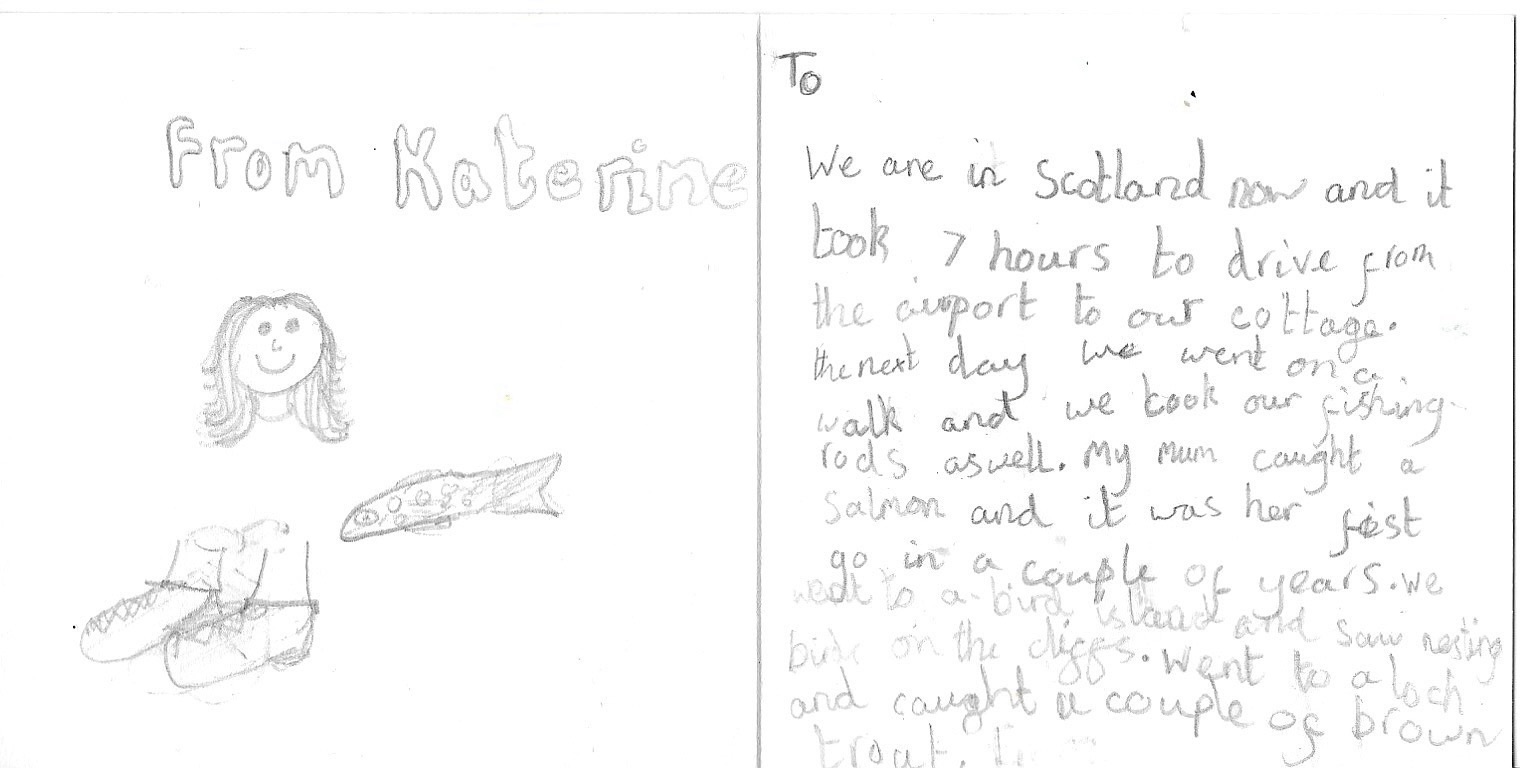 From Katerine
To
We are in Scotland now and it
took 7 hours to drive from
the airport to our cottage.
the next day we went on a
walk and we took our fishing
rods aswell. My mum caught a
Salmon and it was her fist
go in a couple of years. we
went to a bird island and saw nesting
birds on the cliffs. Went to a loch
and caught a couple of brown
trout.